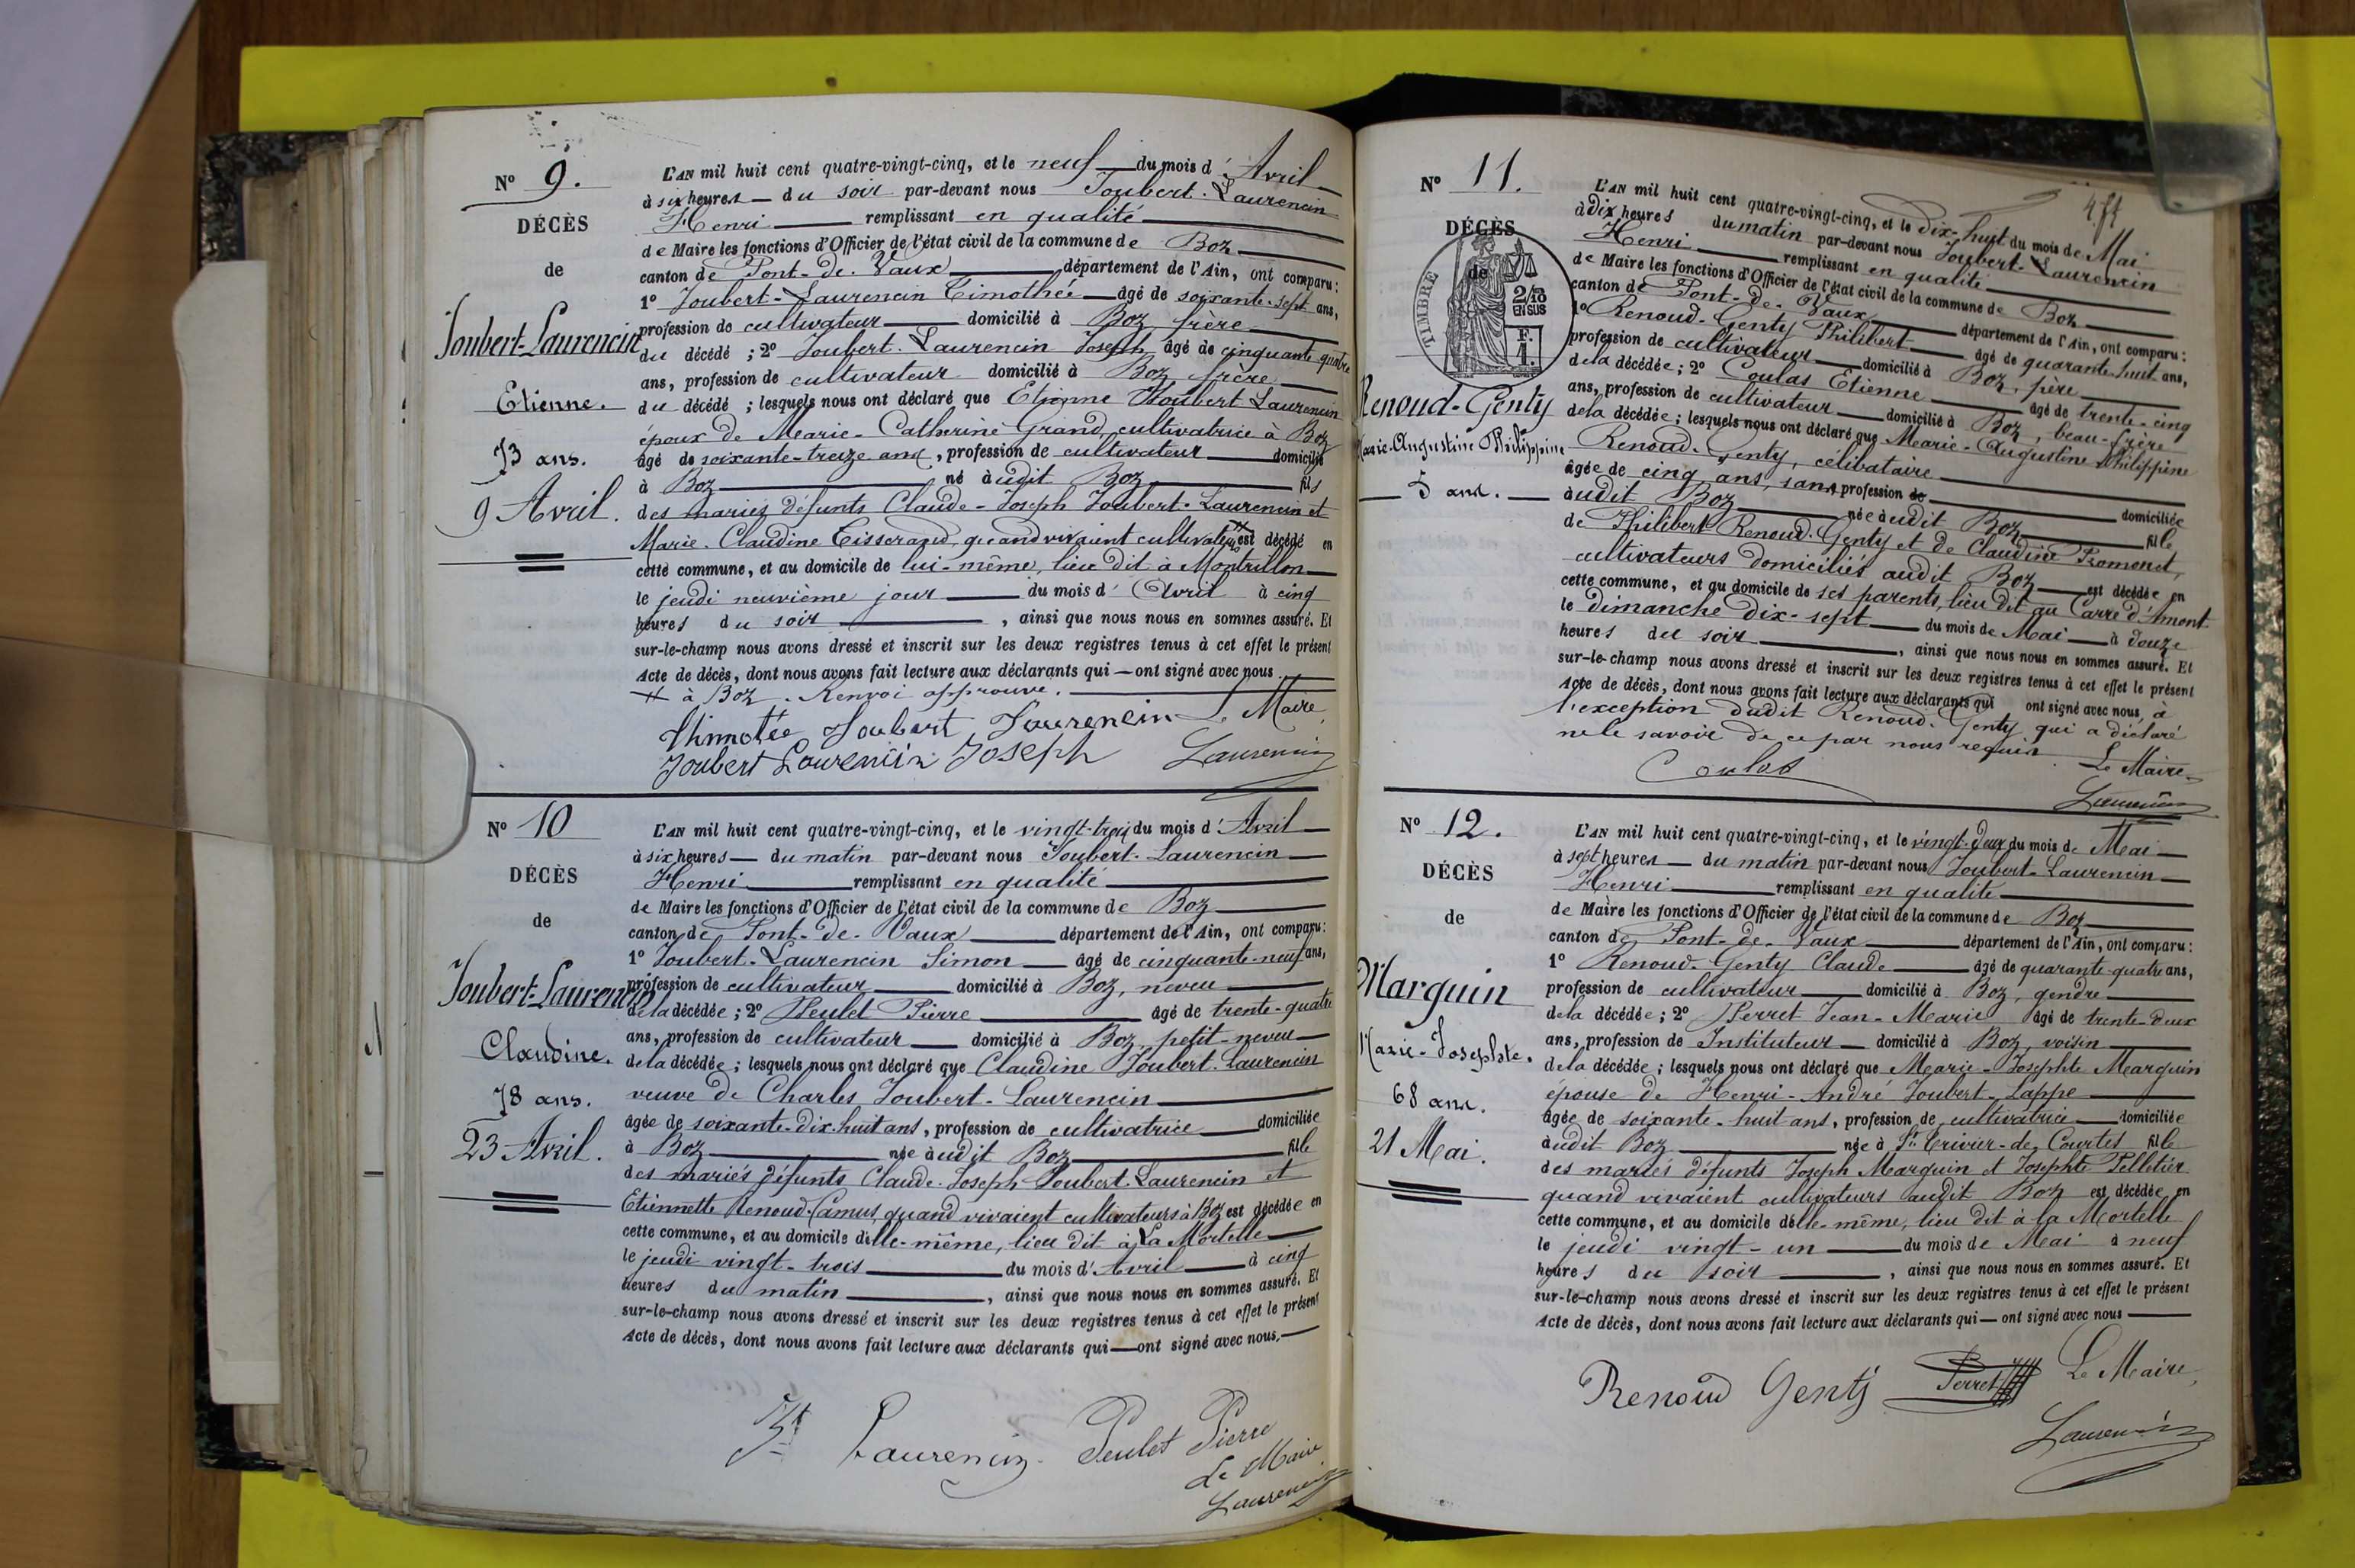 N° 9.
DÉCÈS
de
Joubert-Laurencin
Etienne.
73 ans.
9 Avril.
L'AN mil huit cent quatre-vingt-cinq, et le neuf du mois d'Avril
à six heures du soir par-devant nous Joubert-Laurencin
Henri remplissant en qualité
de Maire les fonctions d'Officier de l'état civil de la commune de Boz
canton de Pont-de-Vaux département de l'Ain, ont comparu:
1° Joubert-Laurencin Timothée âgé de soixante-sept ans,
profession de cultivateur domicilié à Boz, frère
du décédé; 2° Joubert-Laurencin Joseph âgé de cinquante quatre
ans, profession de cultivateur domicilié à Boz frère
du décédé; lesquels nous ont déclaré que Etienne Joubert Laurencin
époux de Marie-Catherine Grand, cultivatrice à Boz
âgé de soixante-treize ans, profession de cultivateur domicilié
à Boz né audit Boz fils
des mariés défunts Claude-Joseph Joubert-Laurencin et
Marie-Claudine Tisserand, quand vivaient cultivateurs # est décédé en
cette commune, et au domicile de lui-même, lieu dit à Montrillon
le jeudi neuvième jour du mois d'Avril à cinq
heures du soir, ainsi que nous nous en sommes assuré. Et
sur-le-champ nous avons dressé et inscrit sur les deux registres tenus à cet effet le présent
Acte de décès, dont nous avons fait lecture aux déclarants qui ont signé avec nous.
# à Boz. Renvoi approuvé.
Thimotée Joubert Laurencin Le Maire,
Joubert Laurencin Joseph Laurencin
N° 10
DÉCÈS
de
Joubert-Laurencin
Claudine.
78 ans.
23 Avril.
L'AN mil huit cent quatre-vingt-cinq, et le vingt-trois du mois d'Avril
à six heures du matin par-devant nous Joubert-Laurencin
Henri remplissant en qualité
de Maire les fonctions d'Officier de l'état civil de la commune de Boz
canton de Pont-de-Vaux département de l'Ain, ont comparu:
1° Joubert-Laurencin Simon âgé de cinquante-neuf ans,
profession de cultivateur domicilié à Boz, neveu
de la décédée; 2° Peulet Pierre âgé de trente-quatre
ans, profession de cultivateur domicilié à Boz, petit-neveu
de la décédée; lesquels nous ont déclaré que Claudine Joubert-Laurencin
veuve de Charles Joubert-Laurencin
âgée de soixante-dix-huit ans, profession de cultivatrice domiciliée
à Boz née audit Boz fille
des mariés défunts Claude-Joseph Joubert-Laurencin et
Etiennette Renoud-Camus, quand vivaient cultivateurs à Boz est décédée en
cette commune, et au domicile d'elle-même, lieu dit à La Mortelle
le jeudi vingt-trois du mois d'Avril à cinq
heures du matin, ainsi que nous nous en sommes assuré. Et
sur-le-champ nous avons dressé et inscrit sur les deux registres tenus à cet effet le présent
Acte de décès, dont nous avons fait lecture aux déclarants qui ont signé avec nous.
Laurencin Peulet Pierre
Le Maire
Laurencin
N° 11.
DÉCÈS
de
TIMBRE
2/10
EN SUS
F.
1.
Renoud-Genty
Marie-Augustine Philippine
5 ans.
L'AN mil huit cent quatre-vingt-cinq, et le dix-huit du mois de Mai
à dix heures du matin par-devant nous Joubert-Laurencin
Henri remplissant en qualité
de Maire les fonctions d'Officier de l'état civil de la commune de Boz
canton de Pont-de-Vaux département de l'Ain, ont comparu:
1° Renoud-Genty Philibert âgé de quarante-huit ans,
profession de cultivateur domicilié à Boz, père
de la décédée; 2° Coulas Etienne âgé de trente-cinq
ans, profession de cultivateur domicilié à Boz, beau-frère
de la décédée; lesquels nous ont déclaré que Marie-Augustine Philippine
Renoud-Genty, célibataire
âgée de cinq ans, sans profession de domiciliée
audit Boz née audit Boz fille
de Philibert Renoud-Genty et de Claudine Promonet,
cultivateurs domiciliés audit Boz est décédée en
cette commune, et au domicile de ses parents, lieu dit au Carre d'Amont
le dimanche dix-sept du mois de Mai à douze
heures du soir, ainsi que nous nous en sommes assuré. Et
sur-le-champ nous avons dressé et inscrit sur les deux registres tenus à cet effet le présent
Acte de décès, dont nous avons fait lecture aux déclarants qui ont signé avec nous, à
l'exception dudit Renoud-Genty qui a déclaré
ne le savoir de ce par nous requis. Le Maire
Coulas Laurencin
N° 12.
DÉCÈS
de
Marguin
Marie-Josephte.
68 ans.
21 Mai.
L'AN mil huit cent quatre-vingt-cinq, et le vingt-deux du mois de Mai
à sept heures du matin par-devant nous Joubert-Laurencin
Henri remplissant en qualité
de Maire les fonctions d'Officier de l'état civil de la commune de Boz
canton de Pont-de-Vaux département de l'Ain, ont comparu:
1° Renoud-Genty Claude âgé de quarante-quatre ans,
profession de cultivateur domicilié à Boz, gendre
de la décédée; 2° Perret Jean-Marie âgé de trente-deux
ans, profession de Instituteur domicilié à Boz, voisin
de la décédée; lesquels nous ont déclaré que Marie-Josephte Marguin
épouse de Henri-André Joubert-Lappe
âgée de soixante-huit ans, profession de cultivatrice domiciliée
audit Boz née à St Trivier-de-Courtes fille
des mariés défunts Joseph Marguin et Josephte Pelletier
quand vivaient cultivateurs audit Boz est décédée en
cette commune, et au domicile d'elle-même, lieu dit à la Mortelle
le jeudi vingt-un du mois de Mai à neuf
heures du soir, ainsi que nous nous en sommes assuré. Et
sur-le-champ nous avons dressé et inscrit sur les deux registres tenus à cet effet le présent
Acte de décès, dont nous avons fait lecture aux déclarants qui ont signé avec nous
Renoud Genty Perret Le Maire,
Laurencin